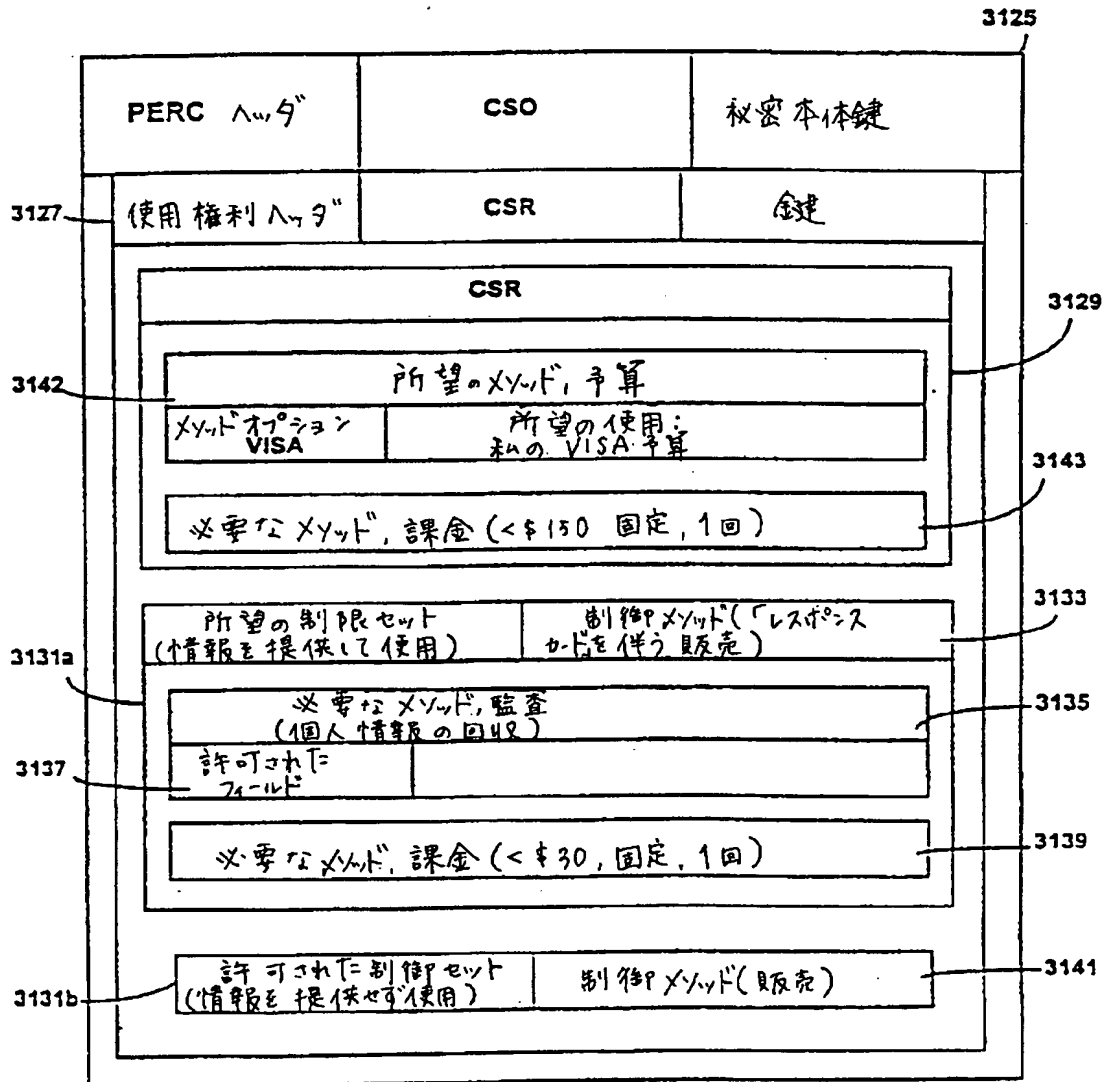 3125
PERC ヘッダ CSO 秘密本体鍵
3127 使用権利ヘッダ CSR 鍵
CSR
3129
所望のメソッド, 予算
3142
メソッドオプション
VISA
所望の使用:
私の VISA 予算
3143
必要なメソッド, 課金 (<$150 固定, 1回)
3133
所望の制限セット
(情報を提供して使用)
制御メソッド(「レスポンス
カード」を伴う 販売)
3131a
必要なメソッド, 監査
(個人情報の回収)
3135
3137
許可された
フィールド
必要なメソッド, 課金 (<$30, 固定, 1回)
3139
許可された制御セット
(情報を提供せず使用)
制御メソッド(販売)
3141
3131b